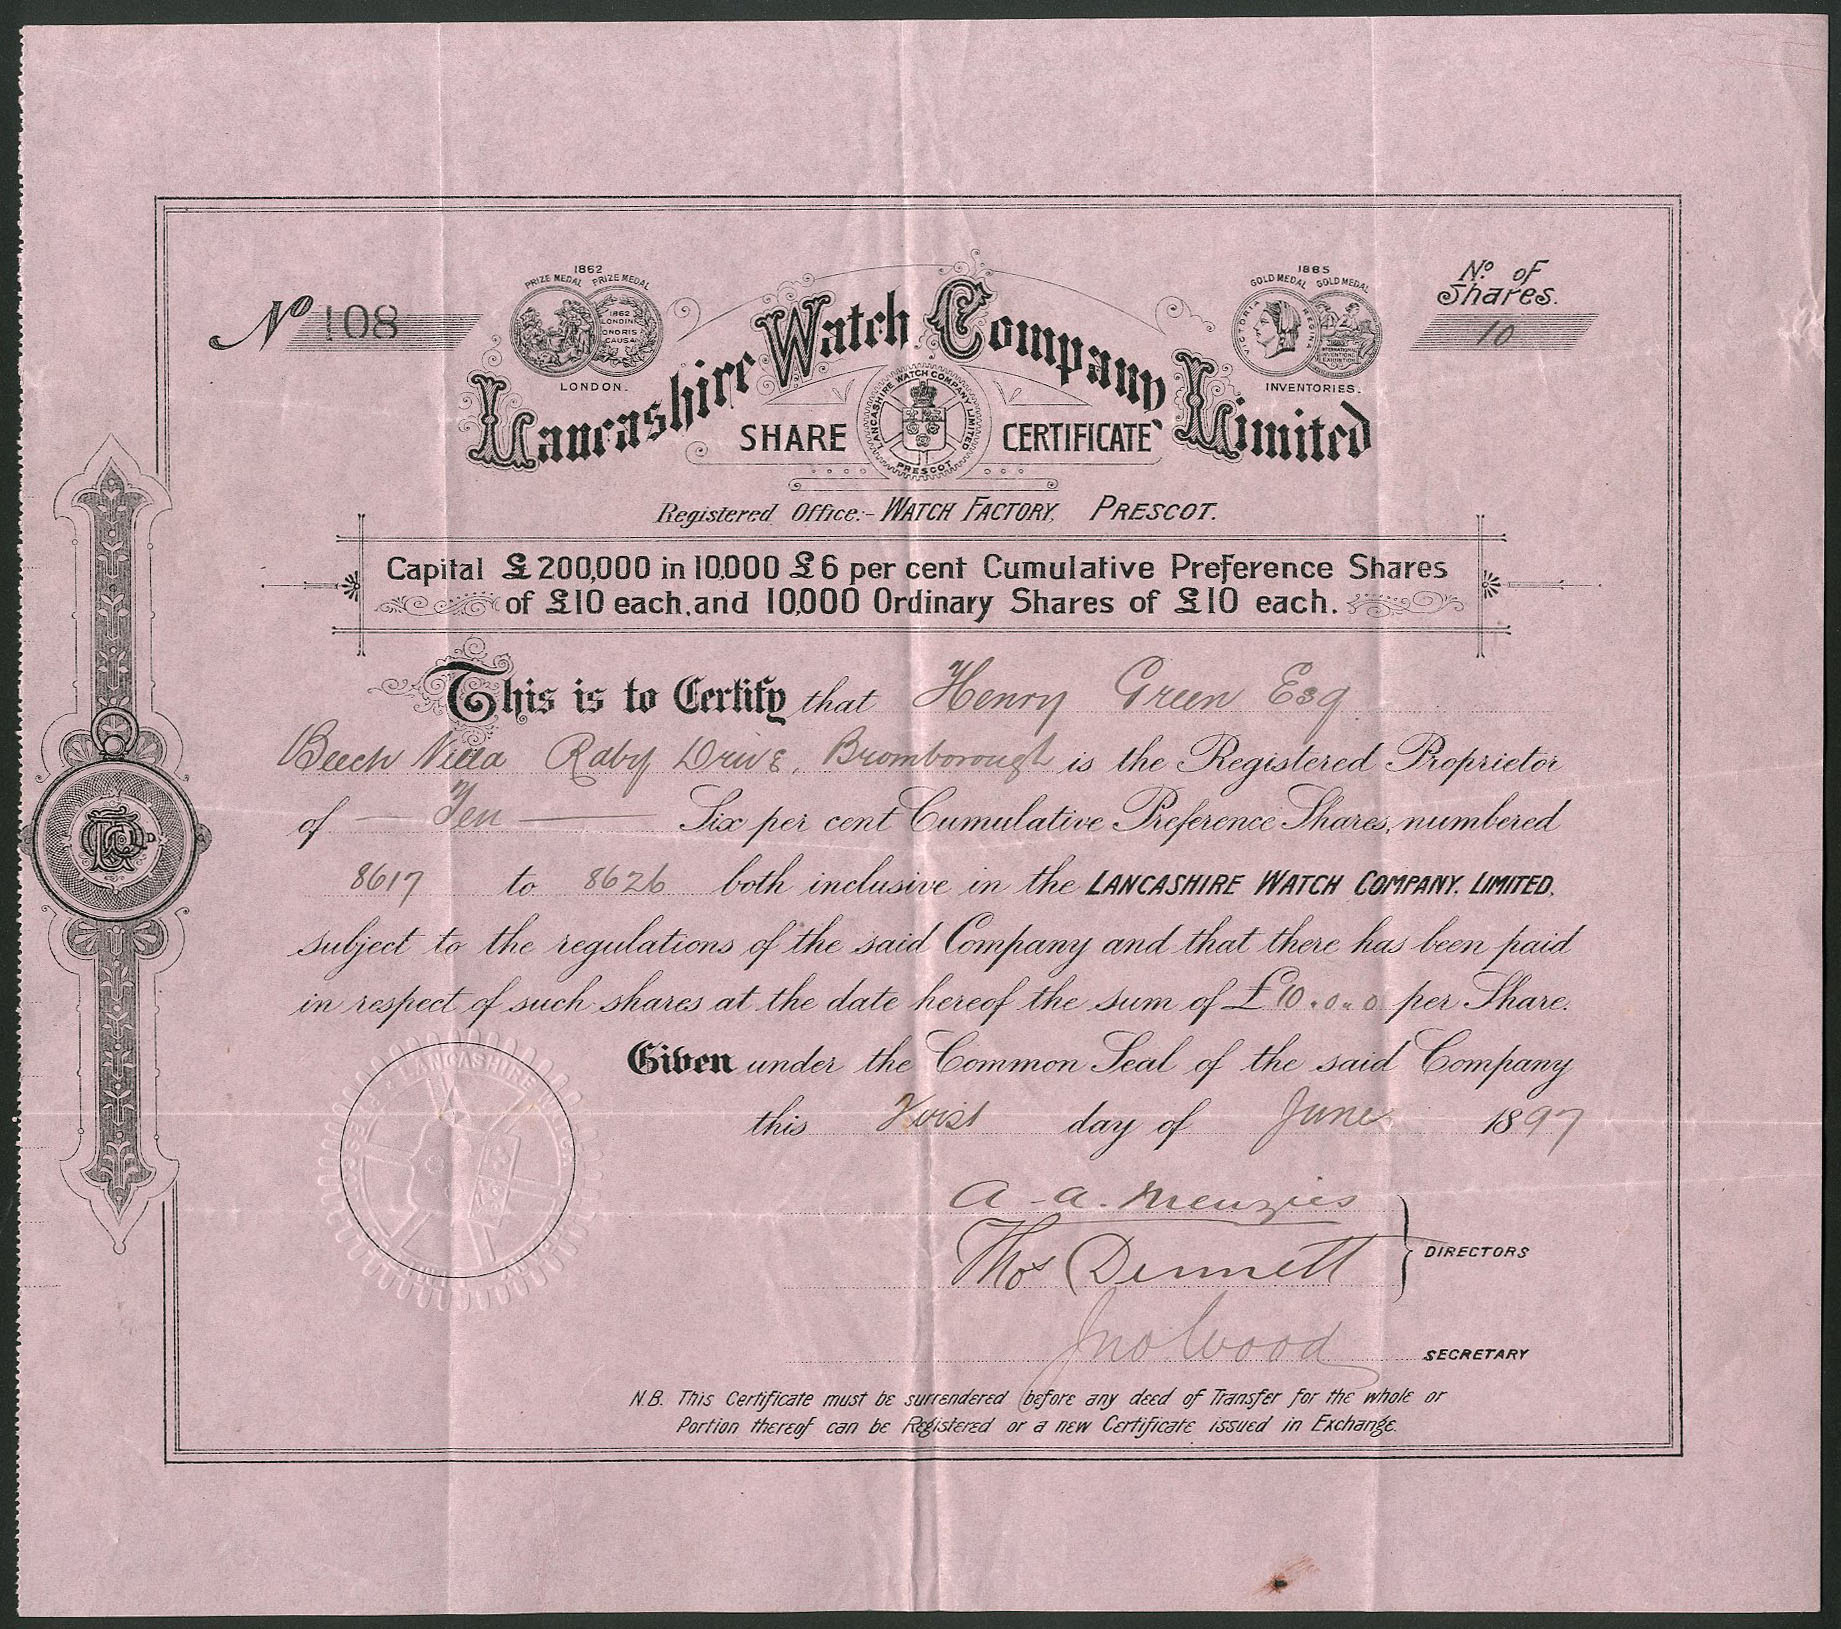 1862
PRIZE MEDAL PRIZE MEDAL
1862
LONDINI
HONORIS
CAUSA
LONDON.
1885
GOLD MEDAL GOLD MEDAL
VICTORIA REGINA
INVENTORIES.
No of
Shares.
10
No 108
Lancashire Watch Company Limited
SHARE CERTIFICATE
LANCASHIRE WATCH COMPANY LIMITED
PRESCOT
Registered Office:- WATCH FACTORY, PRESCOT.
Capital £200,000 in 10,000 £6 per cent Cumulative Preference Shares
of £10 each, and 10,000 Ordinary Shares of £10 each.
This is to Certify that Henry Green Esq
Beech Villa Raby Drive, Bromborough is the Registered Proprietor
of — Ten — Six per cent Cumulative Preference Shares, numbered
8617 to 8626 both inclusive in the LANCASHIRE WATCH COMPANY, LIMITED,
subject to the regulations of the said Company and that there has been paid
in respect of such shares at the date hereof the sum of £10.0.0 per Share.
Given under the Common Seal of the said Company
this day of June 1897
LANCASHIRE
A. A. Menzies
Thos Dennett
DIRECTORS
Jno Wood
SECRETARY
N.B. This Certificate must be surrendered before any deed of Transfer for the whole or
Portion thereof can be Registered or a new Certificate issued in Exchange.